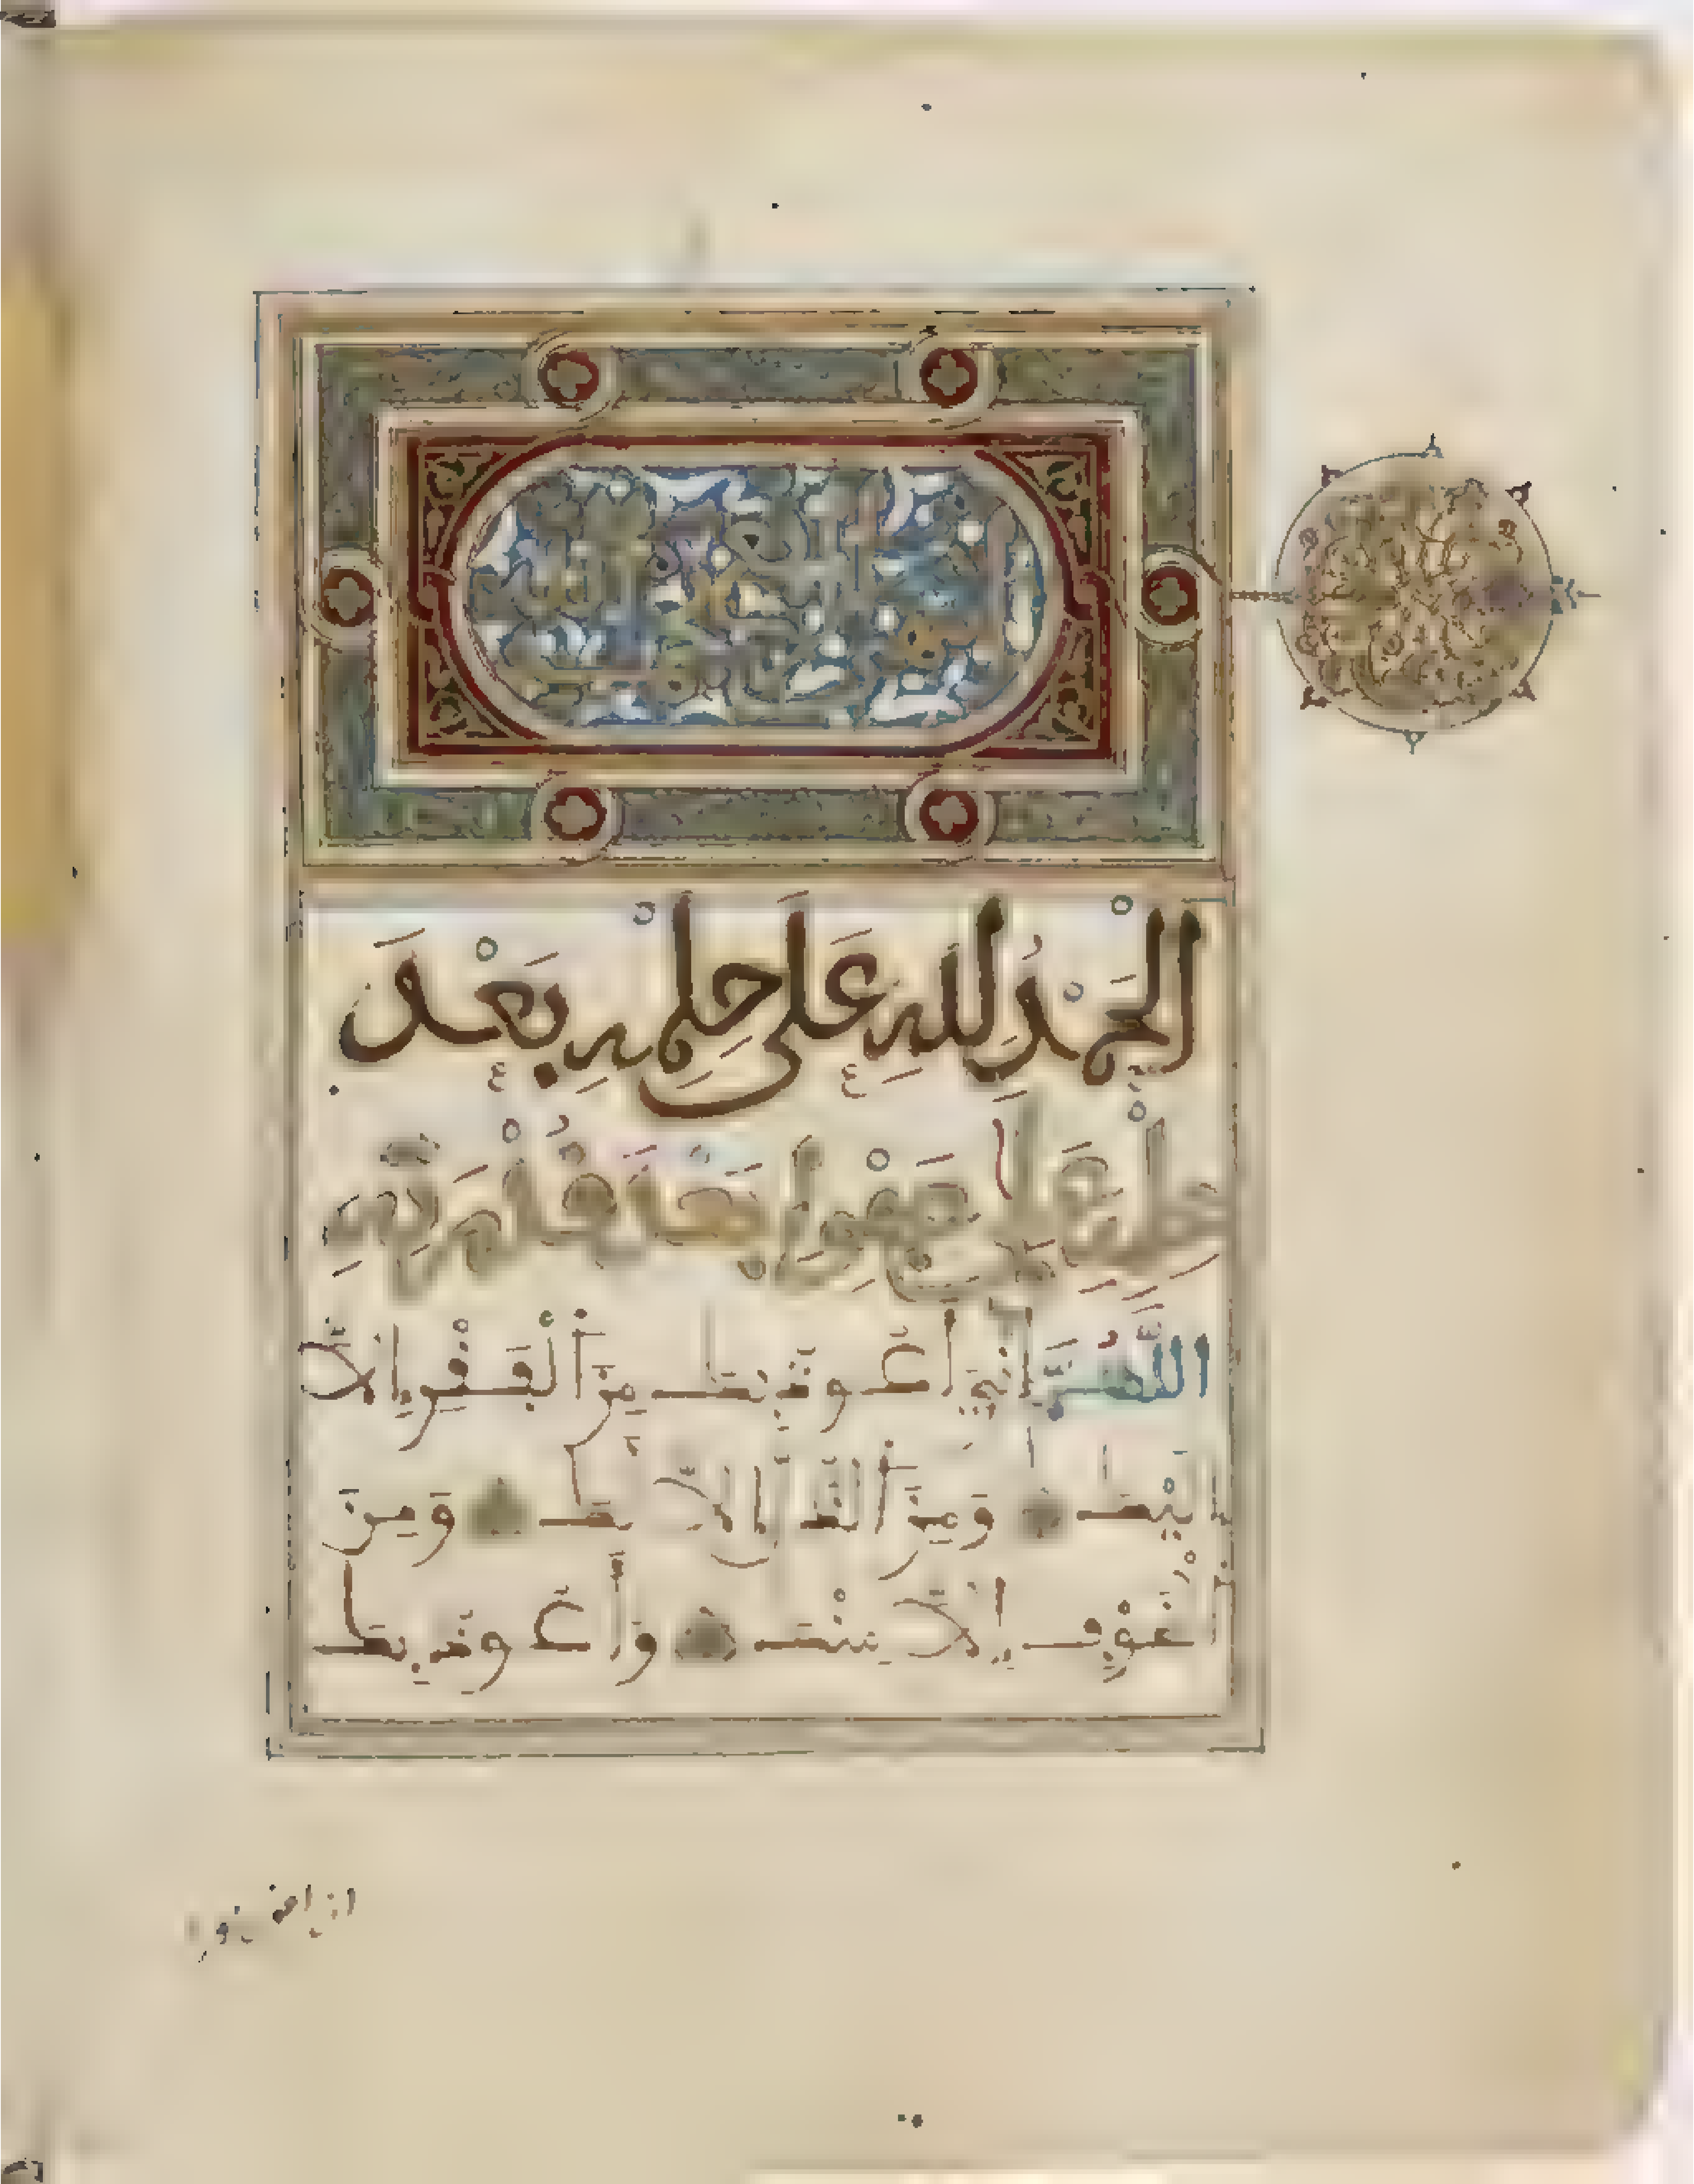 الْحَمْدُ لِلهِ عَلَى حِلْمِهِ بَعْدَ
عِلْمِهِ وَعَلَى عَفْوِهِ بَعْدَ قُدْرَتِهِ
اللَّهُمَّ إِنِّي أَعُوذُ بِكَ مِنَ ٱلْفَقْرِ إِلَّا
إِلَيْكَ وَمِنَ ٱلذُّلِّ إِلَّا لَكَ وَمِنَ
ٱلْخَوْفِ إِلَّا مِنْكَ وَأَعُوذُ بِكَ
ان اقول زورا